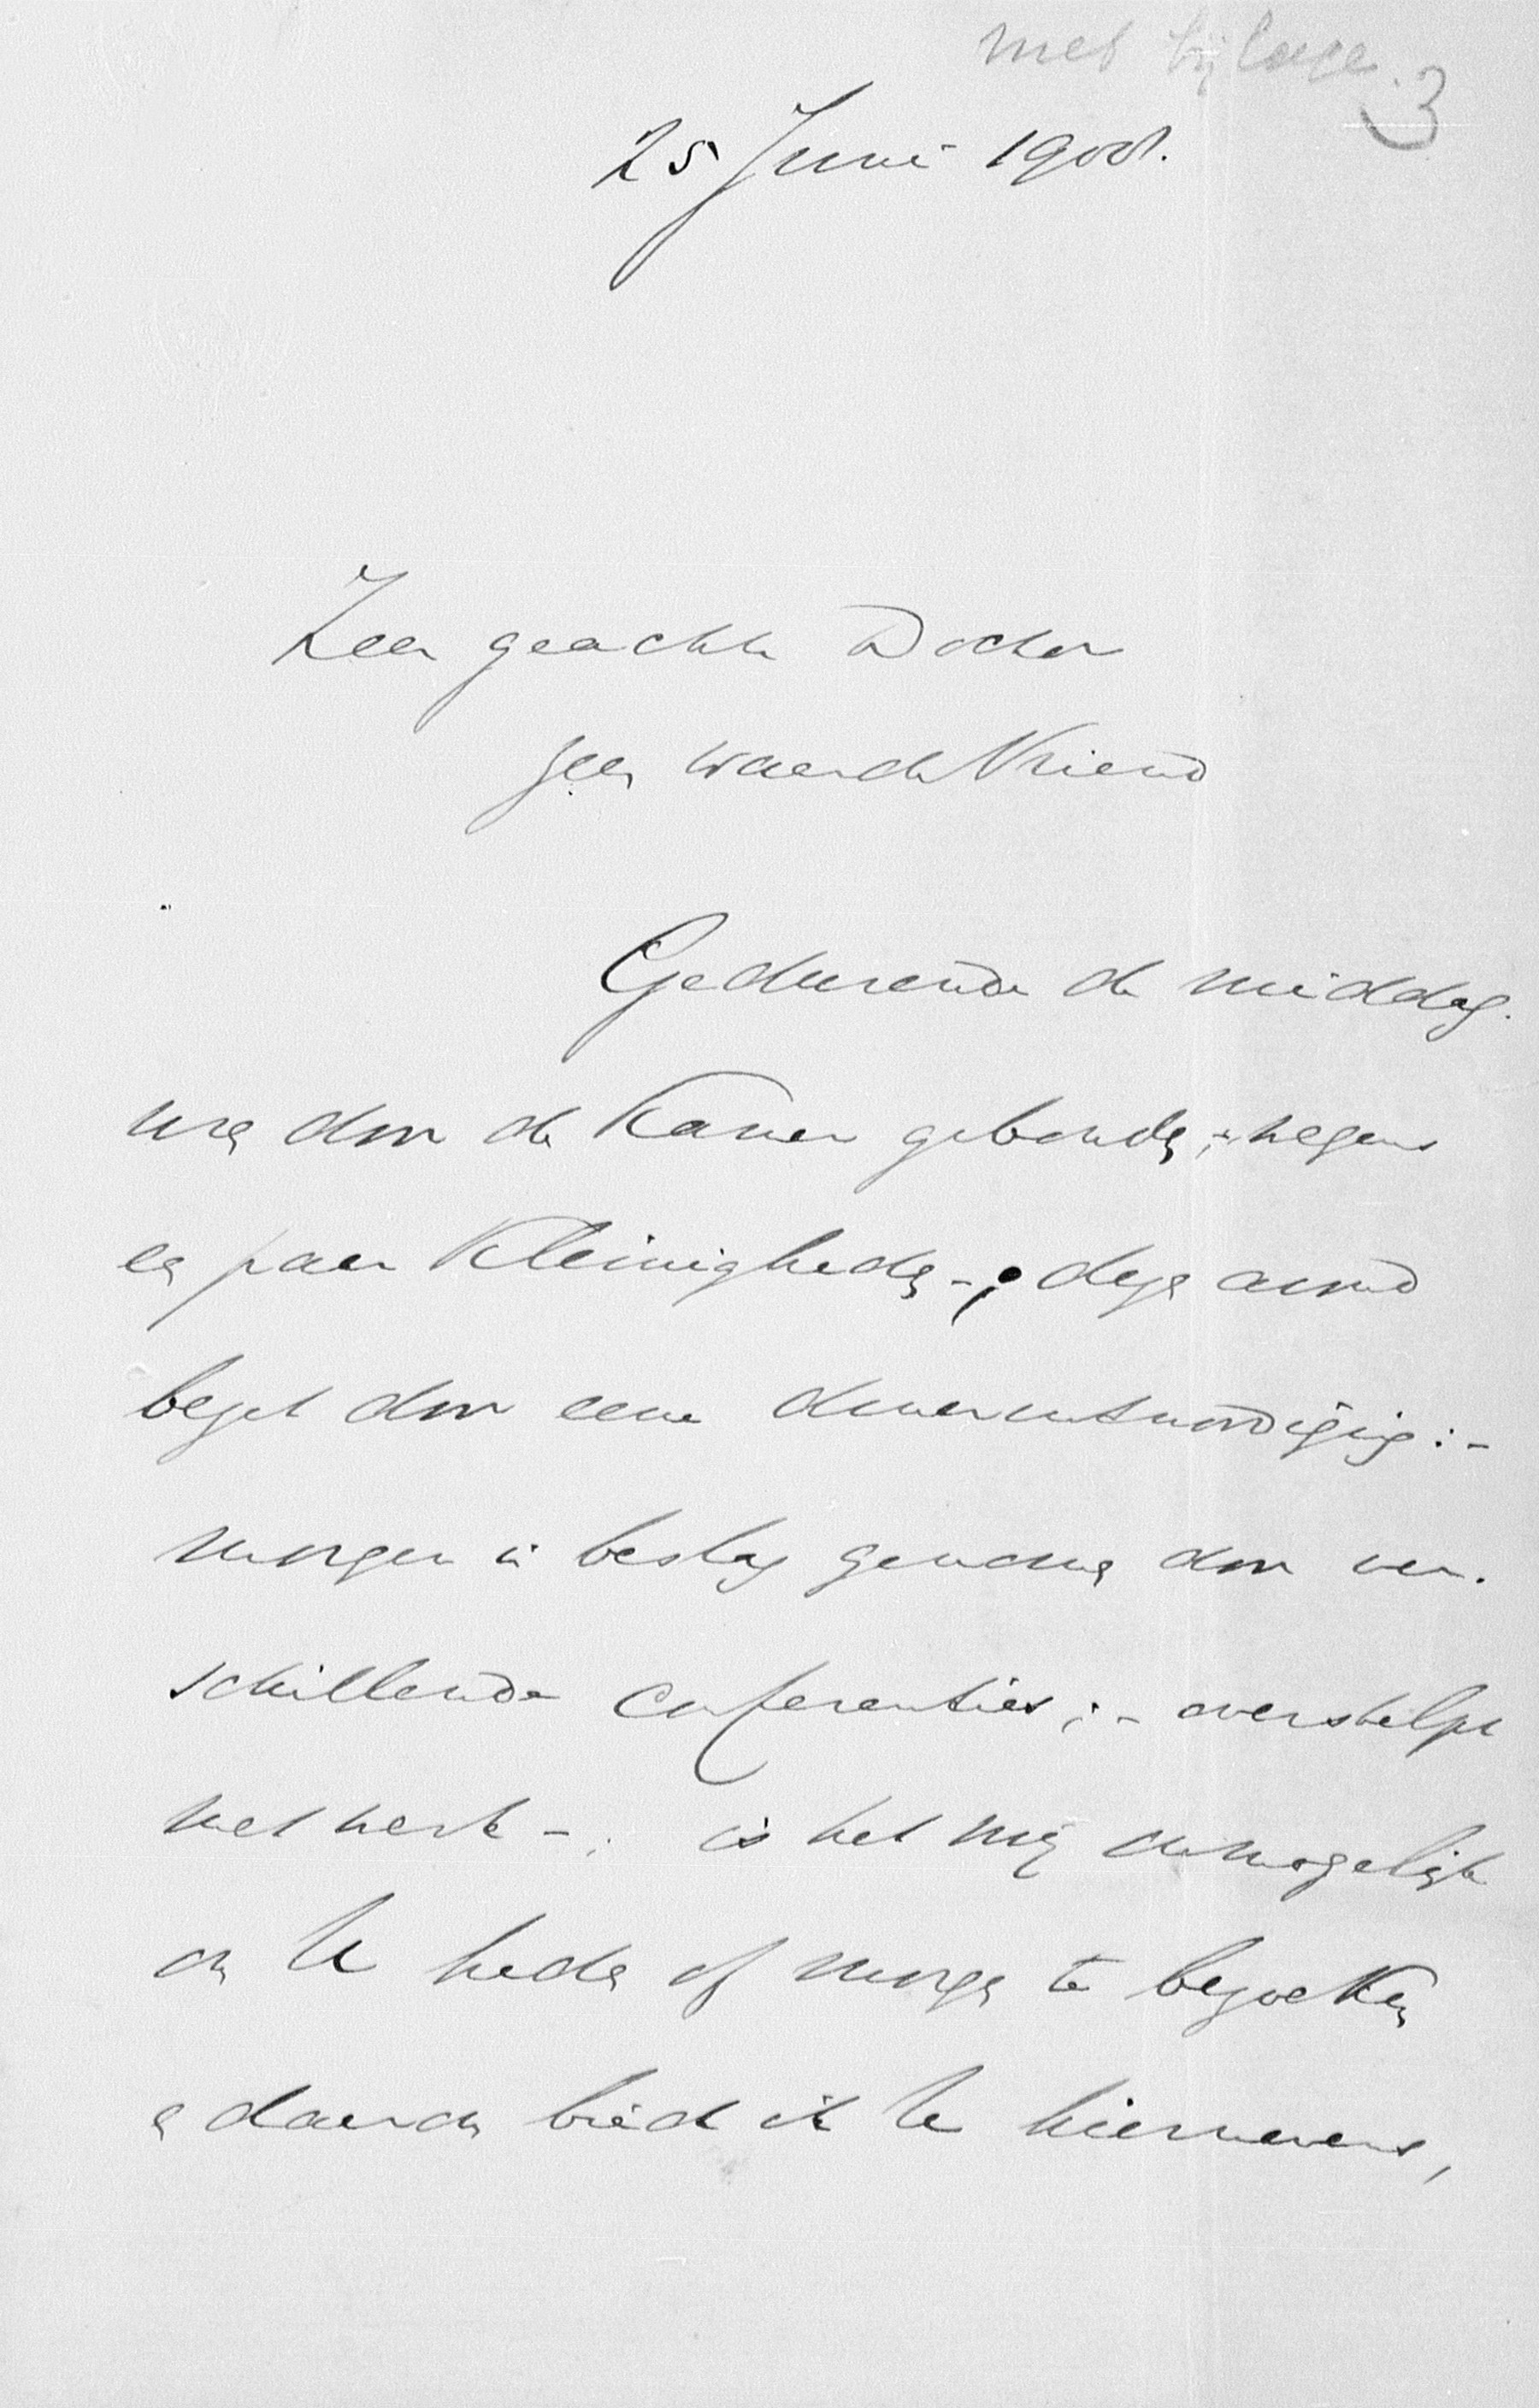 met bijlage. 3
25 Juni 1908.
Zeer geachte Doctor
zeer waarde Vriend
Gedurende de middag-
uren door de Kamer gebonden; - wegens
een paar Kleinigheden -; deze avond
bezet door eene :-
morgen in beslag genomen door ver-
schillende conferenties; - overstelpt
met werk -; is het mij onmogelijk
om U heden of morgen te bezoeken
en daarom bied ik U hiernevens,